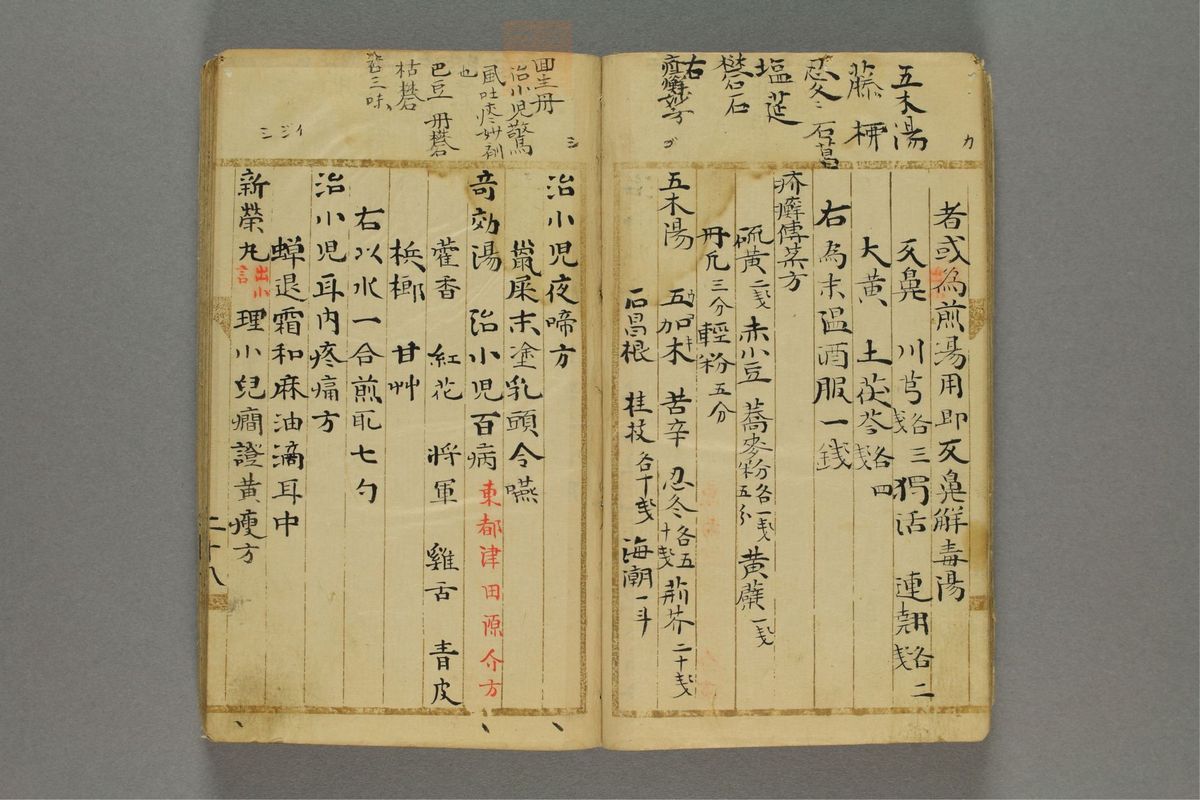 五木湯
藤 栁
忍冬 石菖
塩 莚
礬石
右
疥癬妙方
カ
ゴ
者或為煎湯用即反鼻解毒湯
反鼻 川芎各三戔 獨活 連翹各二戔
大黄 土茯苓各四戔
右為末温酒服一錢
疥癬傳藥方
硫黄二戔 赤小豆 蕎麥粉各一戔五分 黄蘗一戔
丹凢三分 輕粉五分
五木湯 五加木 苦辛 忍冬各五十戔 荊芥二十戔
石昌根 桂枝各十戔 海潮一斗
回生丹
治小児驚
風吐痰妙劑
也
巴豆 丹礬
枯礬
各三味
シ
治小児夜啼方
鼠屎末塗乳頭令嚥
竒効湯 治小児百病 東都津田原介方
藿香 紅花 将軍 雞舌 青皮
梹榔 甘艸
右以水一合煎取七勺
治小児耳内疼痛方
蟬退霜和麻油滴耳中
新榮丸 出小言 理小兒癇證黄瘦方
二十八